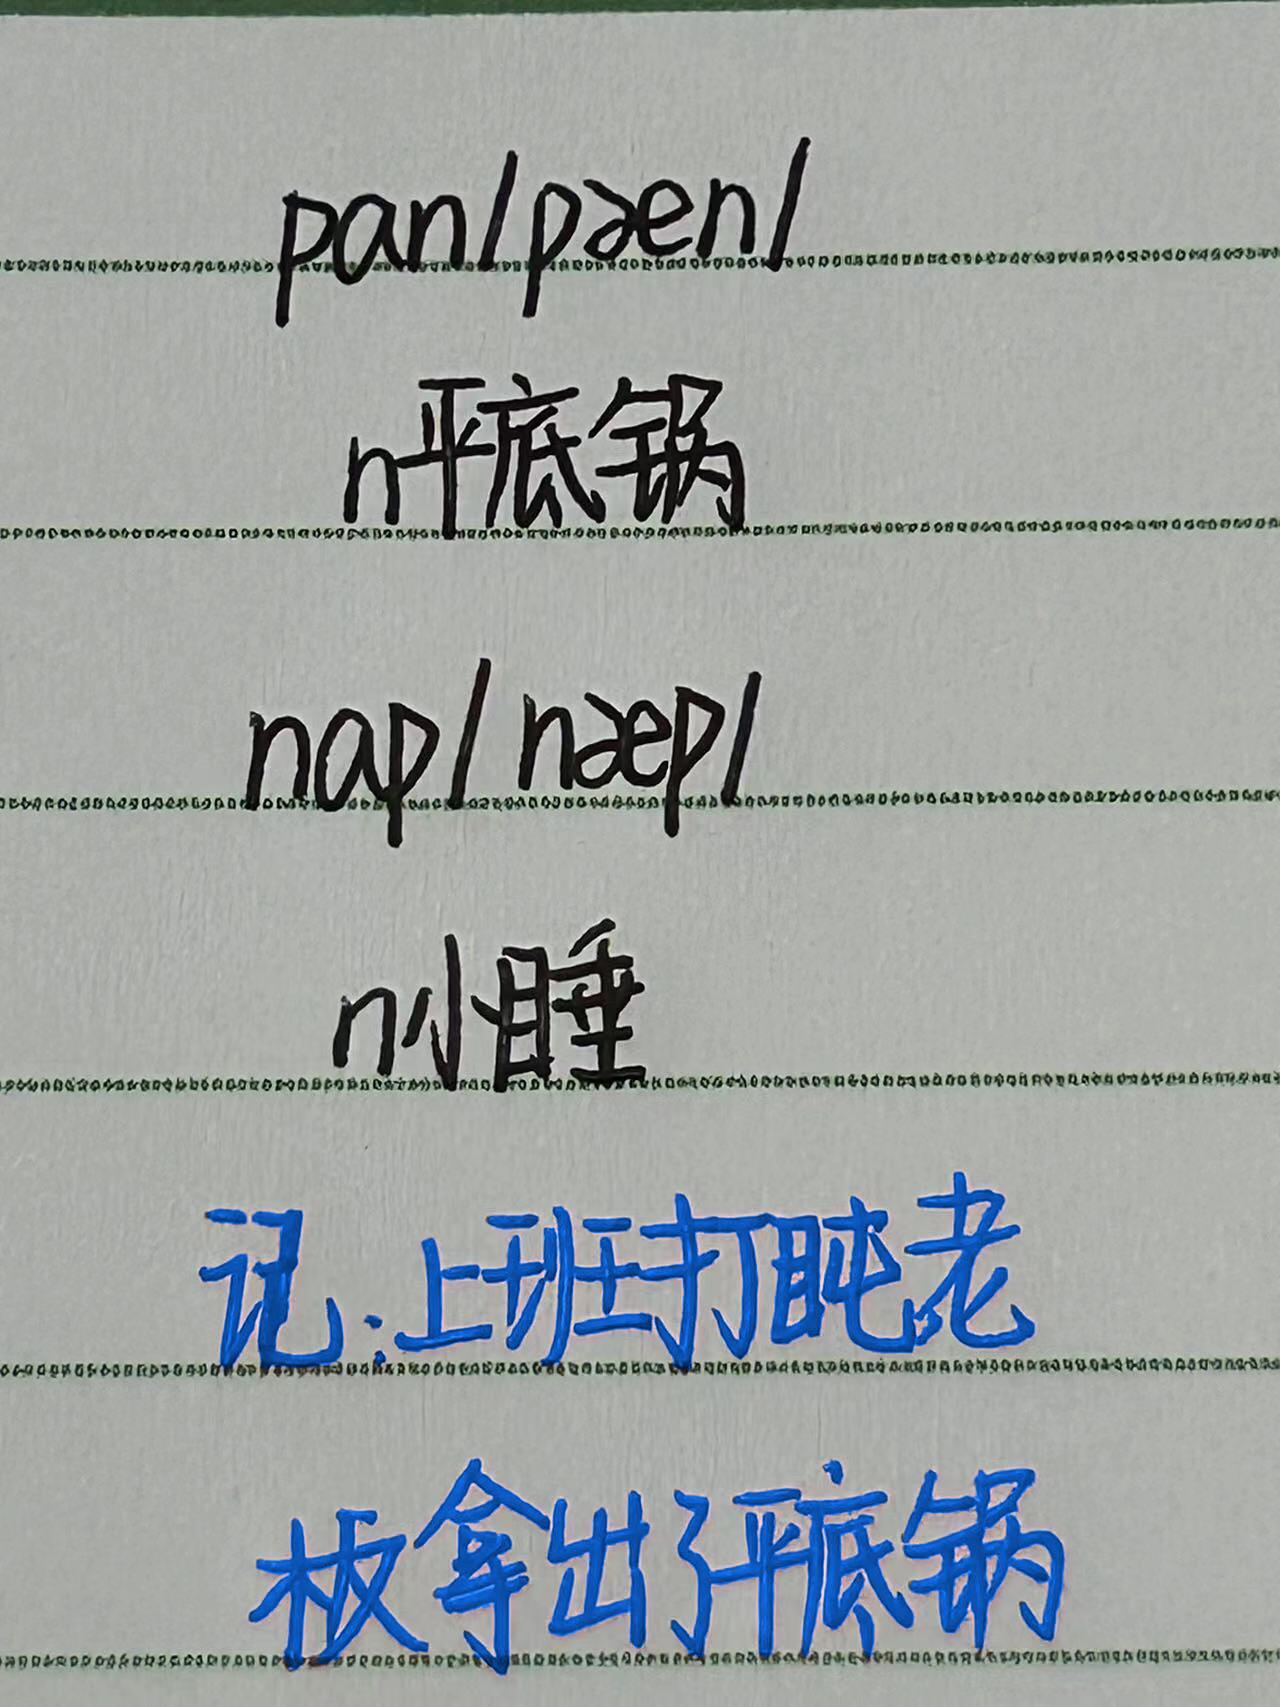 pan/pæn/
n平底锅
nap/næp/
n小睡
记:上班打盹,老
板拿出了平底锅